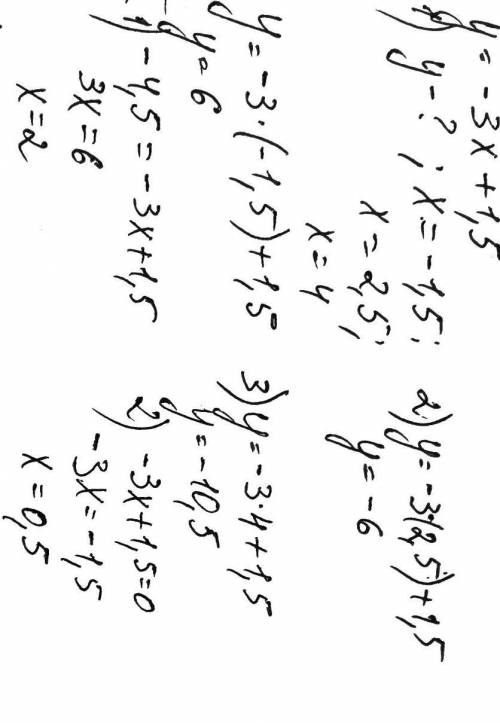 y = -3x + 1,5
1) y - ? ; x = -1,5;
x = 2,5;
x = 4
y = -3·(-1,5)+1,5
y = 6
2) y = -3·(2,5)+1,5
y = -6
3) y = -3·4+1,5
y = -10,5
1) -4,5 = -3x+1,5
3x = 6
x = 2
2) -3x+1,5=0
-3x = -1,5
x = 0,5